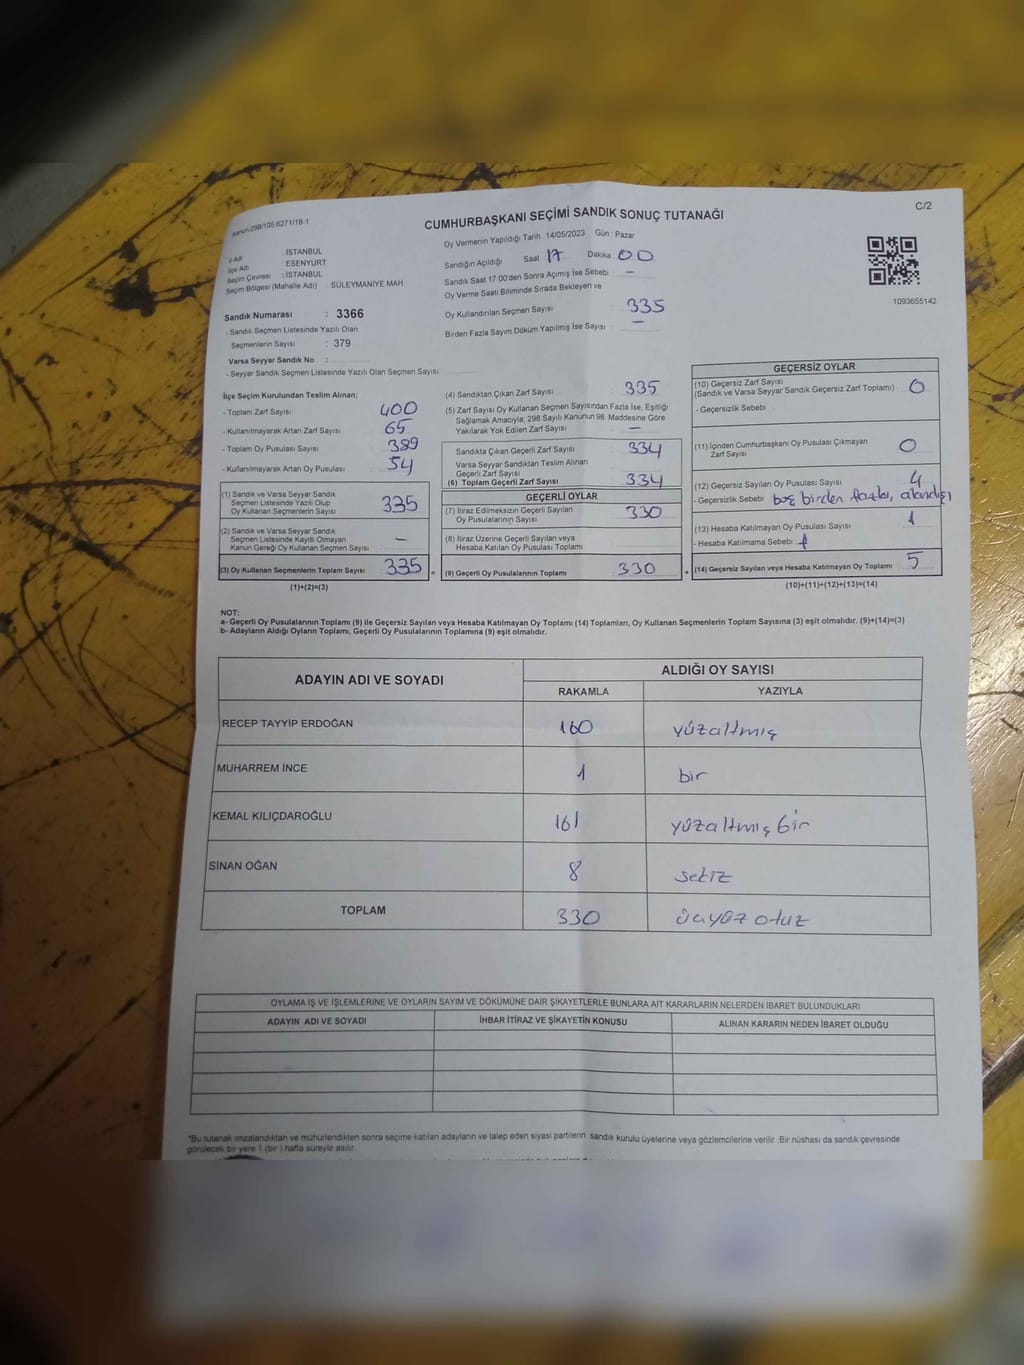 Kanun:298/105;6271/18-1
C/2
CUMHURBAŞKANI SEÇİMİ SANDIK SONUÇ TUTANAĞI
İl Adı : İSTANBUL
İlçe Adı : ESENYURT
Seçim Çevresi : İSTANBUL
Seçim Bölgesi (Mahalle Adı) SÜLEYMANİYE MAH
Sandık Numarası : 3366
- Sandık Seçmen Listesinde Yazılı Olan
Seçmenlerin Sayısı : 379
Varsa Seyyar Sandık No :
- Seyyar Sandık Seçmen Listesinde Yazılı Olan Seçmen Sayısı
Oy Vermenin Yapıldığı Tarih :14/05/2023 Gün : Pazar
Sandığın Açıldığı Saat 17 Dakika 00
Sandık Saat 17:00'den Sonra Açımış İse Sebebi : —
Oy Verme Saati Bitiminde Sırada Bekleyen ve
Oy Kullandırılan Seçmen Sayısı 335
Birden Fazla Sayım Döküm Yapılmış İse Sayısı : —
1093655142
İlçe Seçim Kurulundan Teslim Alınan;
- Toplam Zarf Sayısı 400
- Kullanılmayarak Artan Zarf Sayısı 65
- Toplam Oy Pusulası Sayısı 389
- Kullanılmayarak Artan Oy Pusulası 54
(1) Sandık ve Varsa Seyyar Sandık
Seçmen Listesinde Yazılı Olup
Oy Kullanan Seçmenlerin Sayısı 335
(2) Sandık ve Varsa Seyyar Sandık
Seçmen Listesinde Kayıtlı Olmayan
Kanun Gereği Oy Kullanan Seçmen Sayısı —
(3) Oy Kullanan Seçmenlerin Toplam Sayısı 335 =
(1)+(2)=(3)
(4) Sandıktan Çıkan Zarf Sayısı 335
(5) Zarf Sayısı Oy Kullanan Seçmen Sayısından Fazla İse, Eşitliği
Sağlamak Amacıyla; 298 Sayılı Kanunun 98. Maddesine Göre
Yakılarak Yok Edilen Zarf Sayısı : —
Sandıkta Çıkan Geçerli Zarf Sayısı 334
Varsa Seyyar Sandıktan Teslim Alınan
Geçerli Zarf Sayısı
(6) Toplam Geçerli Zarf Sayısı 334
GEÇERLİ OYLAR
(7) İtiraz Edilmeksizin Geçerli Sayılan
Oy Pusulalarının Sayısı 330
(8) İtiraz Üzerine Geçerli Sayılan veya
Hesaba Katılan Oy Pusulası Toplamı
(9) Geçerli Oy Pusulalarının Toplamı 330 +
GEÇERSİZ OYLAR
(10) Geçersiz Zarf Sayısı
(Sandık ve Varsa Seyyar Sandık Geçersiz Zarf Toplamı) 0
- Geçersizlik Sebebi
(11) İçinden Cumhurbaşkanı Oy Pusulası Çıkmayan
Zarf Sayısı 0
(12) Geçersiz Sayılan Oy Pusulası Sayısı 4
- Geçersizlik Sebebi boş birden fazla,
(13) Hesaba Katılmayan Oy Pusulası Sayısı 1
- Hesaba Katılmama Sebebi
(14) Geçersiz Sayılan veya Hesaba Katılmayan Oy Toplamı 5
(10)+(11)+(12)+(13)=(14)
NOT:
a- Geçerli Oy Pusulalarının Toplamı (9) ile Geçersiz Sayılan veya Hesaba Katılmayan Oy Toplamı (14) Toplamları, Oy Kullanan Seçmenlerin Toplam Sayısına (3) eşit olmalıdır. (9)+(14)=(3)
b- Adayların Aldığı Oyların Toplamı, Geçerli Oy Pusulalarının Toplamına (9) eşit olmalıdır.
ADAYIN ADI VE SOYADI
ALDIĞI OY SAYISI
RAKAMLA YAZIYLA
RECEP TAYYİP ERDOĞAN 160 yüzaltmış
MUHARREM İNCE 1 bir
KEMAL KILIÇDAROĞLU 161 yüzaltmışbir
SİNAN OĞAN 8 sekiz
TOPLAM 330 üçyüz otuz
OYLAMA İŞ VE İŞLEMLERİNE VE OYLARIN SAYIM VE DÖKÜMÜNE DAİR ŞİKAYETLERLE BUNLARA AİT KARARLARIN NELERDEN İBARET BULUNDUKLARI
ADAYIN ADI VE SOYADI İHBAR İTİRAZ VE ŞİKAYETİN KONUSU ALINAN KARARIN NEDEN İBARET OLDUĞU
*Bu tutanak imzalandıktan ve mühürlendikten sonra seçime katılan adayların ve talep eden siyasi partilerin sandık kurulu üyelerine veya gözlemcilerine verilir. Bir nüshası da sandık çevresinde
görülecek bir yere 1 (bir ) hafta süreyle asılır.